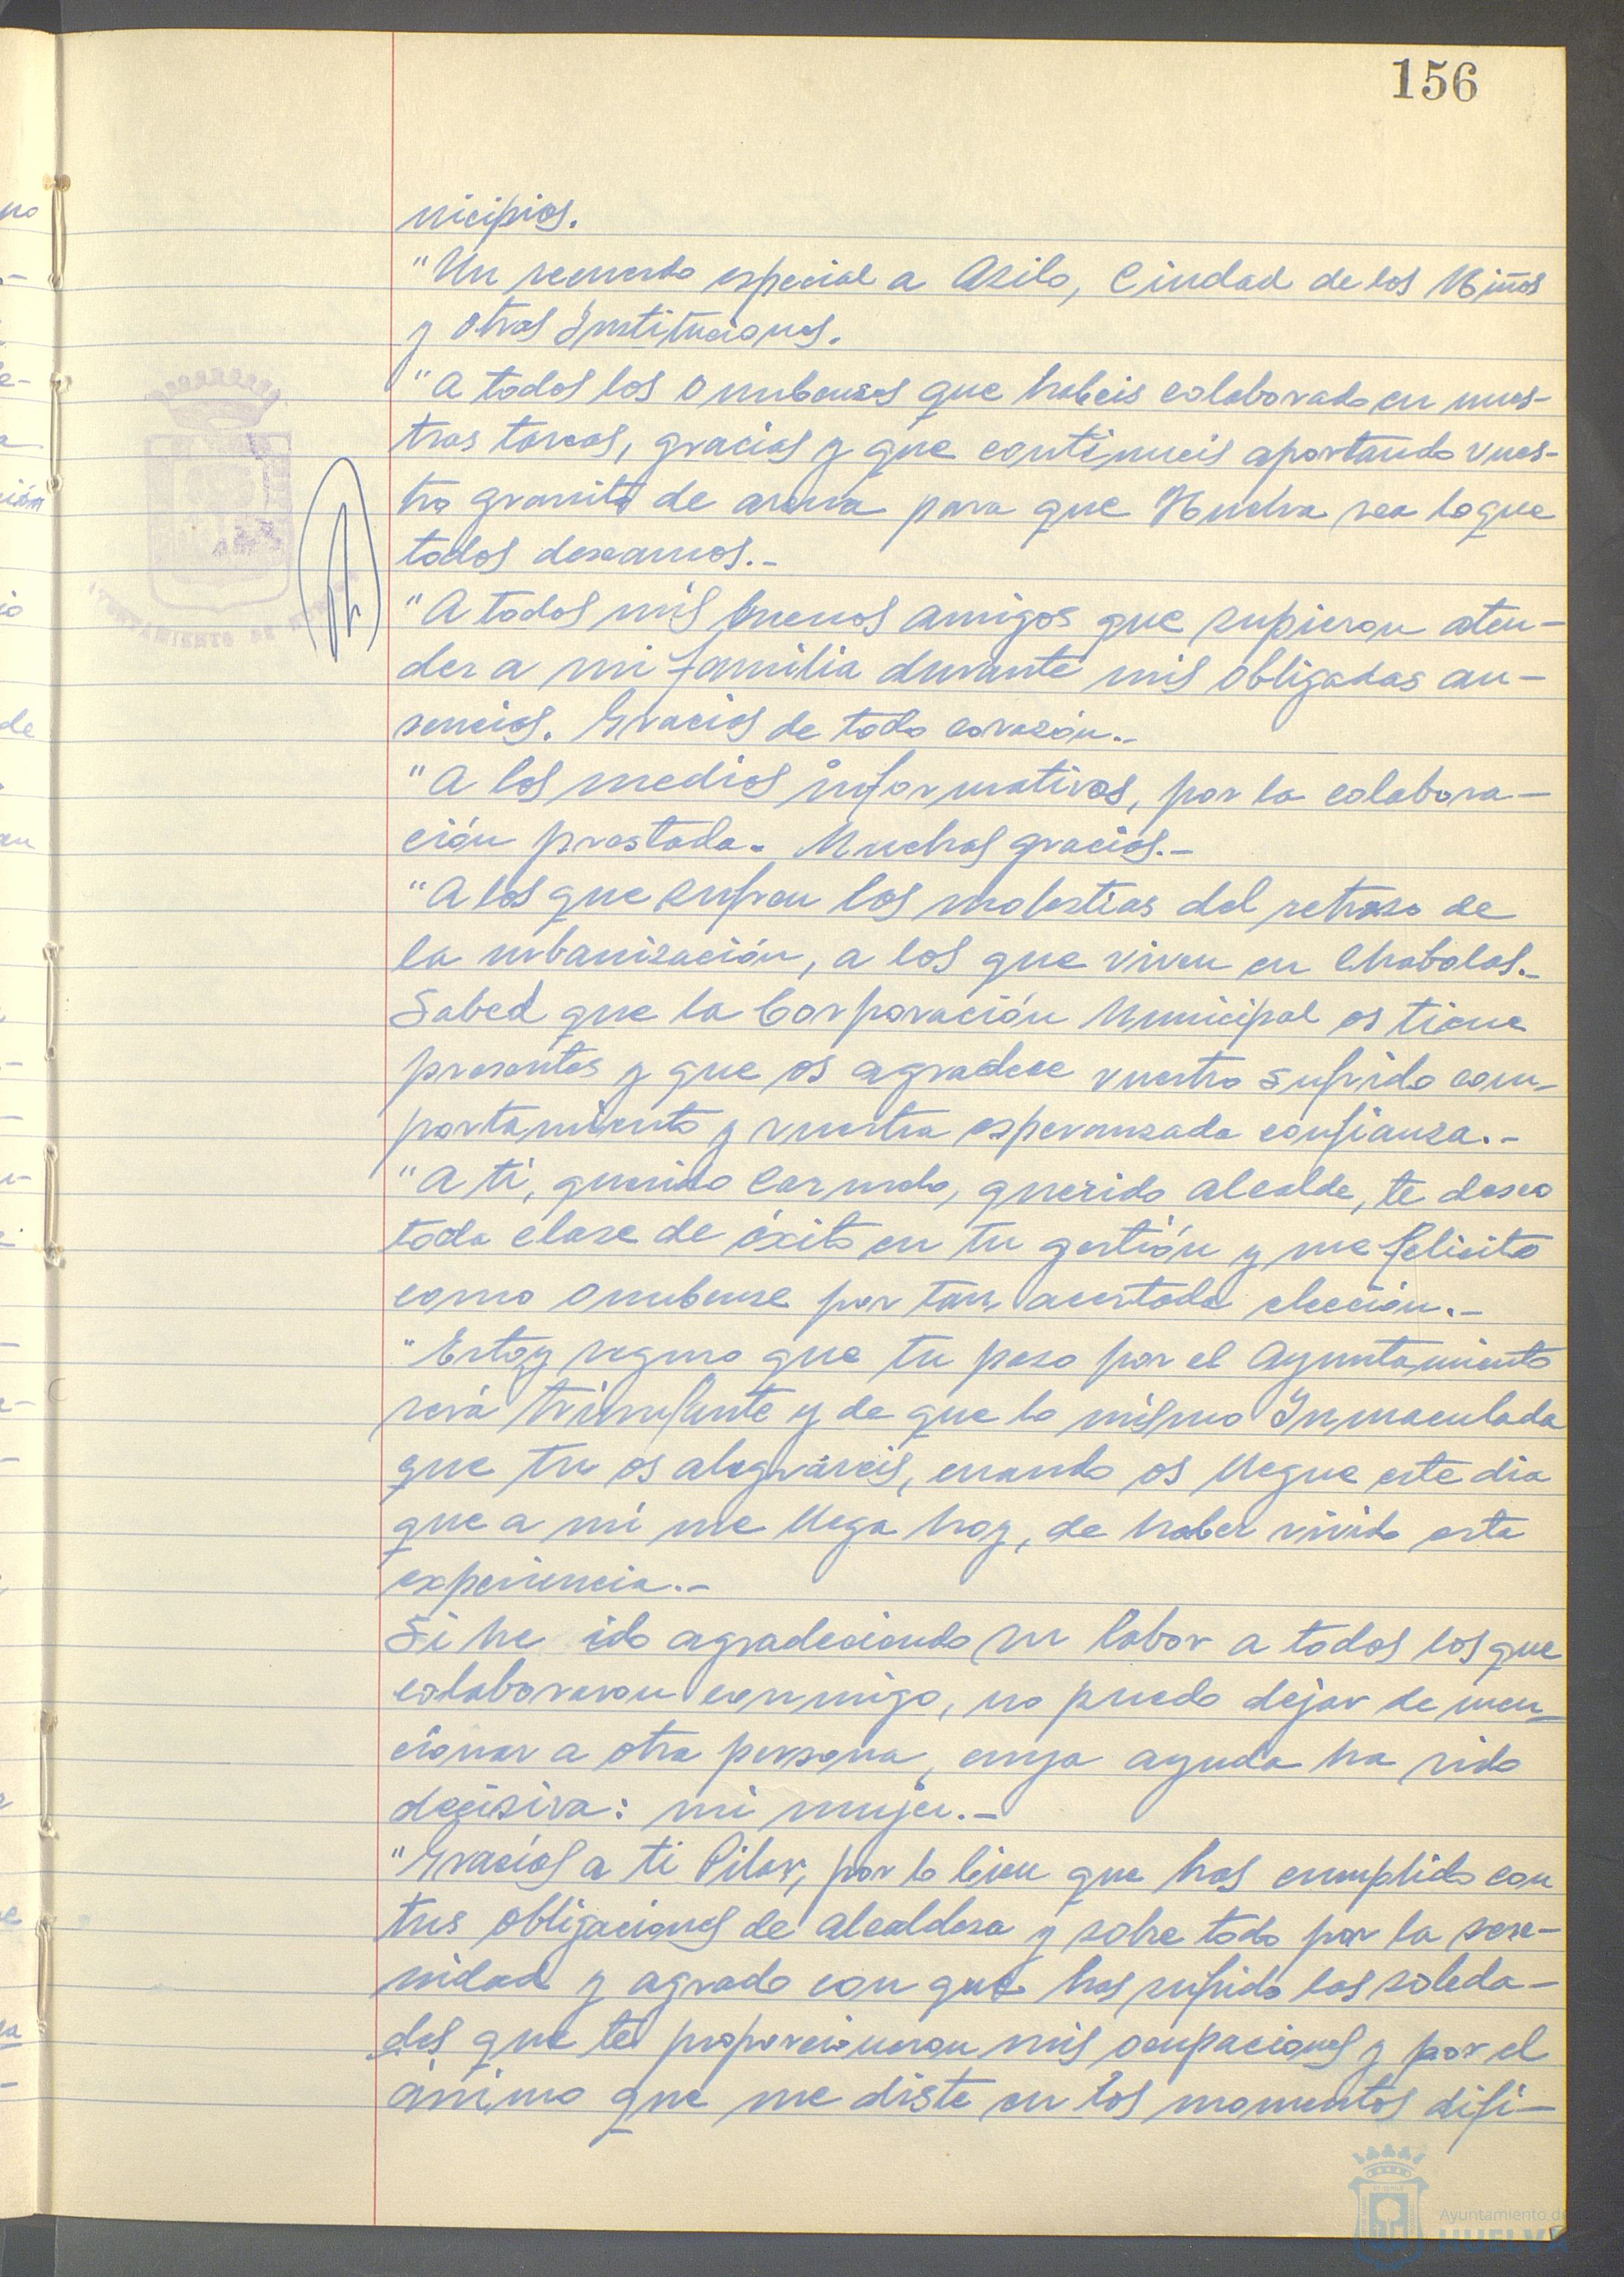 156
nicipios.
"Un recuerdo especial a Asilo, Ciudad de los Niños
y otras Instituciones.
"A todos los Onubenses que habeis colaborado en nues-
tras tareas, gracias y que continueis aportando vues-
tro granito de arena para que Huelva sea lo que
todos deseamos.-
"A todos mis buenos amigos que supieron aten-
der a mi familia durante mis obligadas au-
sencias. Gracias de todo corazón.-
"A los medios informativos, por la colabora-
ción prestada. Muchas gracias.-
"A los que sufren las molestias del retraso de
la urbanización, a los que viven en Chabolas.-
Sabed que la Corporación Municipal os tiene
presentes y que os agradece vuestro sufrido com-
portamiento y vuestra esperanzada confianza.-
"A ti, querido, querido alcalde, te deseo
toda clase de éxito en tu gestión y me felicito
como onubense por tan acertada elección.-
"Estoy seguro que tu paso por el Ayuntamiento
será triunfante y de que lo mismo Inmaculada
que tu os alegráreis, cuando os llegue este dia
que a mí me llega hoy, de haber vivido esta
experiencia.-
Si he ido agradeciendo su labor a todos los que
colaboraron conmigo, no puedo dejar de men-
cionar a otra persona, cuya ayuda ha sido
decisiva: mi mujer.-
"Gracias a ti Pilar, por lo bien que has cumplido con
tus obligaciones de alcaldesa y sobre todo por la sere-
nidad y agrado con que has sufrido las soleda-
des que te proporcionaron mis ocupaciones y por el
ánimo que me diste en los momentos difi-
AYUNTAMIENTO DE HUELVA
Ayuntamiento de
HUELVA